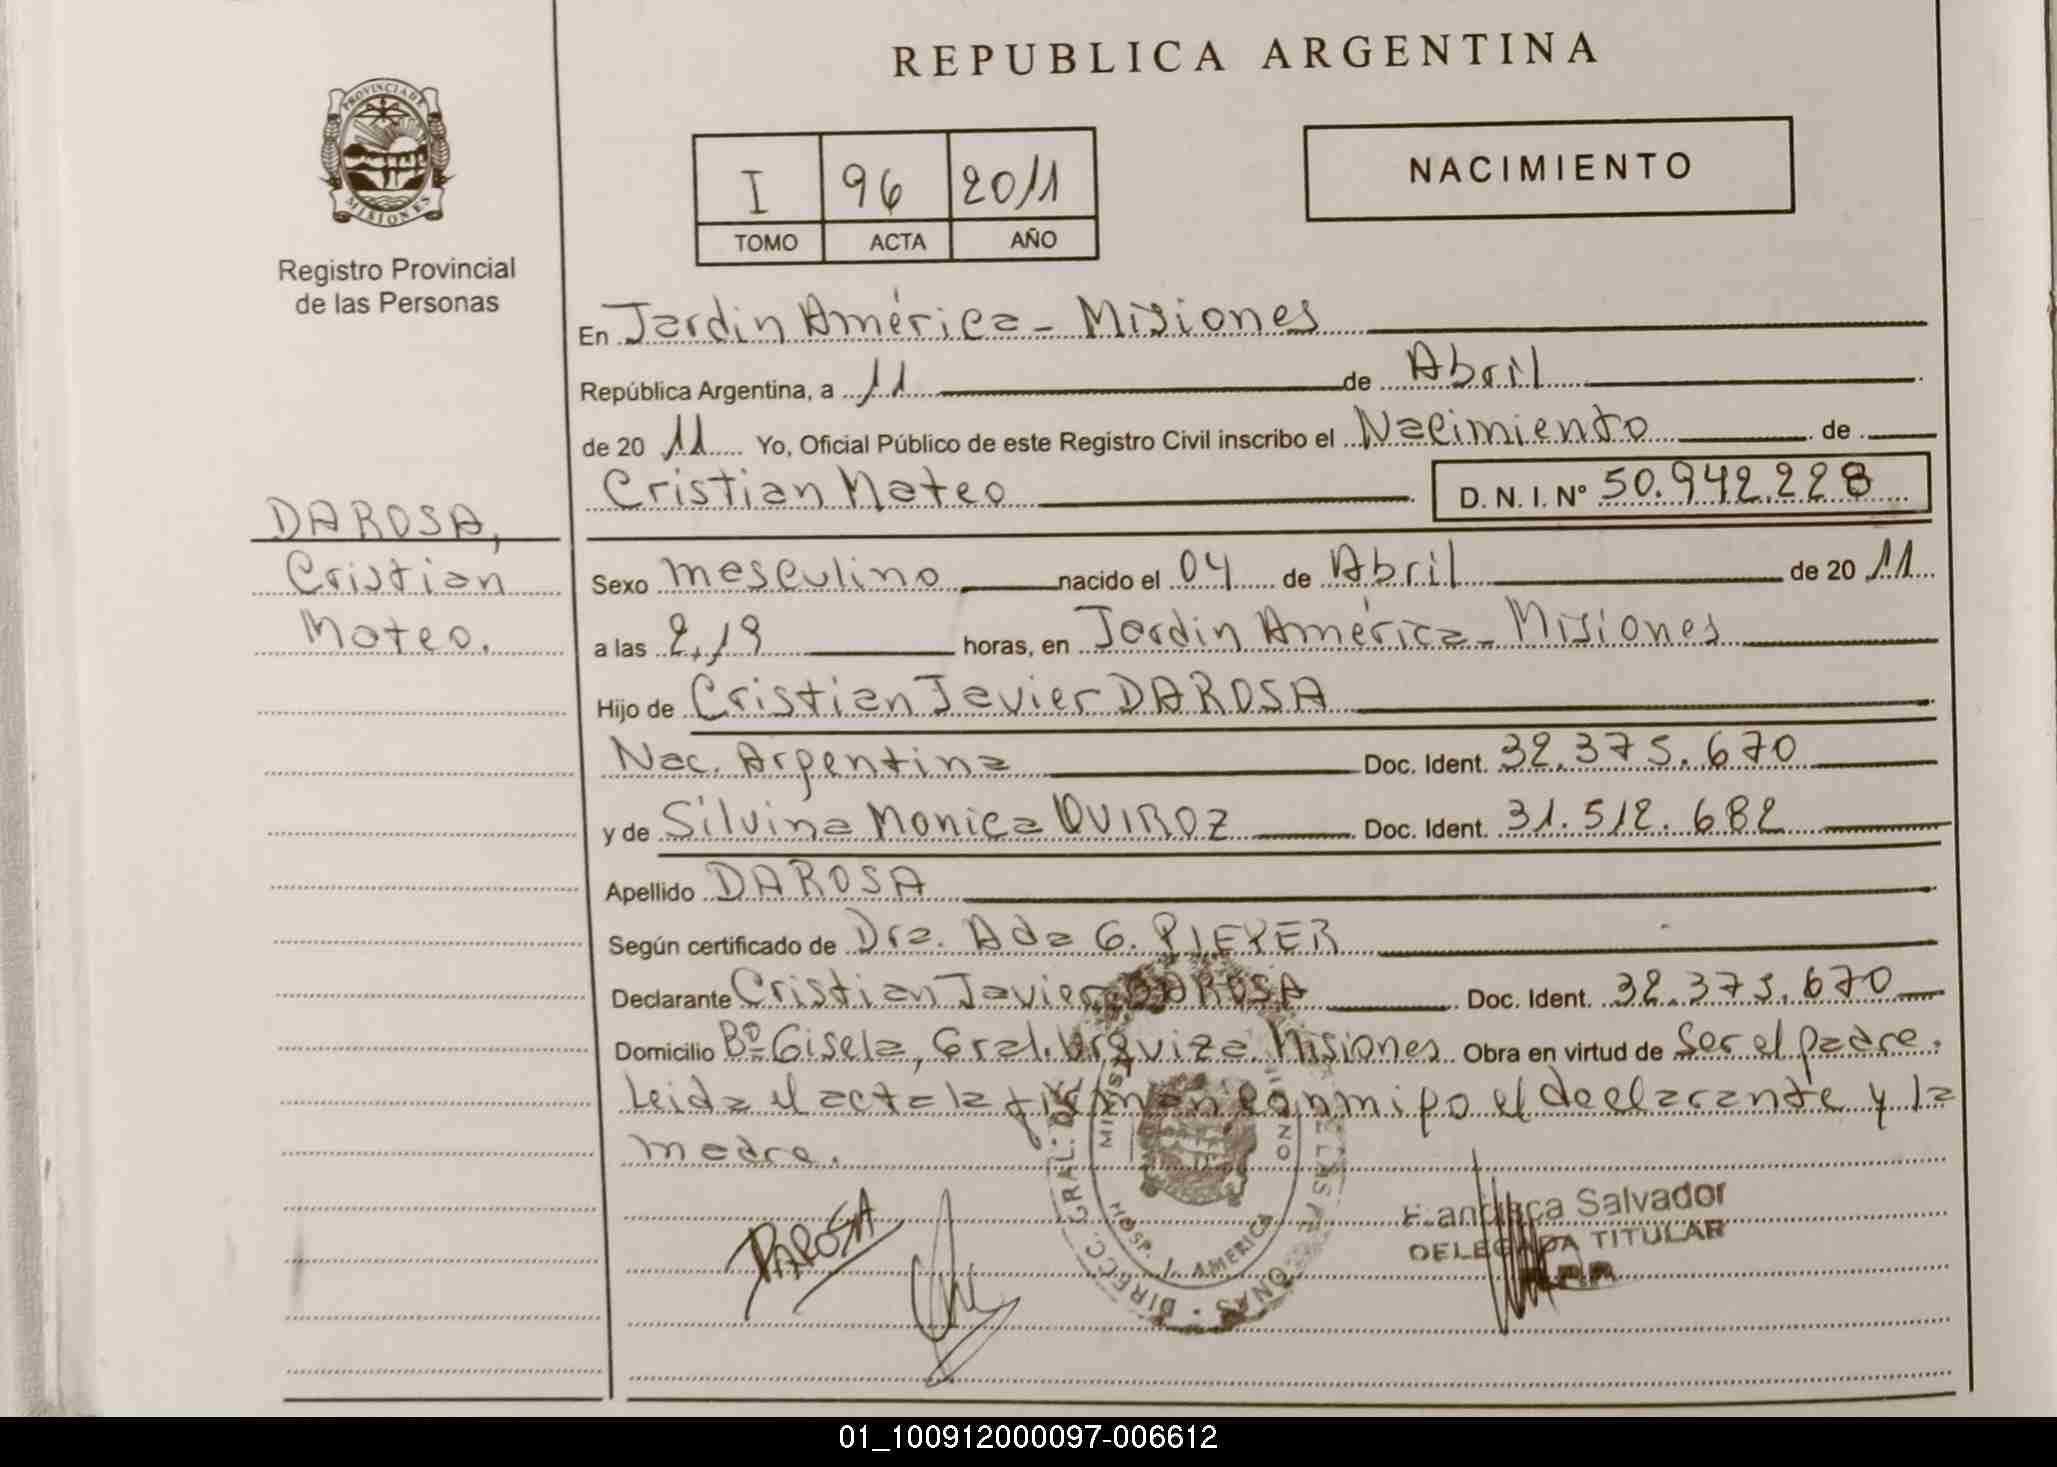 REPUBLICA ARGENTINA
PROVINCIA DE
MISIONES
Registro Provincial
de las Personas
I 96 2011
TOMO ACTA AÑO
NACIMIENTO
En Jardin América - Misiones
República Argentina, a 11 de Abril
de 20 11 Yo, Oficial Público de este Registro Civil inscribo el Nacimiento de
Cristian Mateo D. N. I. Nº 50.942.228
DAROSA,
Cristian
Mateo.
Sexo masculino nacido el 04 de Abril de 20 11
a las 2,19 horas, en Jardin América - Misiones
Hijo de Cristian Javier DAROSA
Nac. Argentina Doc. Ident. 32.375.670
y de Silvina Monica QUIROZ Doc. Ident. 31.512.682
Apellido DAROSA
Según certificado de Dra. Ada G.
Declarante Cristian Javier DAROSA Doc. Ident. 32.375.670
Domicilio Bº Gisela, Gral. Urquiza. Misiones Obra en virtud de Ser el padre.
Leida el acta la firman conmigo el declarante y la
madre.
DAROSA
HOSP. J. AMERICA
Salvador
DELEGADA TITULAR
01_100912000097-006612